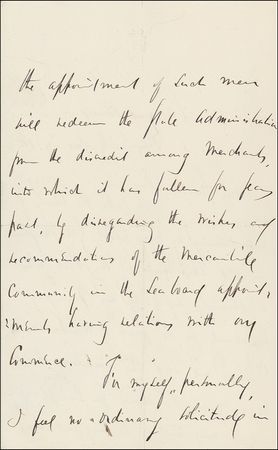 the appointment of such men
will redeem the State Administration
from the discredit among Merchants,
into which it has fallen for years
past, by disregarding the wishes and
recommendations of the Mercantile
Community in the Seaboard appoint-
:ments having relations with our
Commerce.
For myself, personally,
I feel no ordinary solicitude in